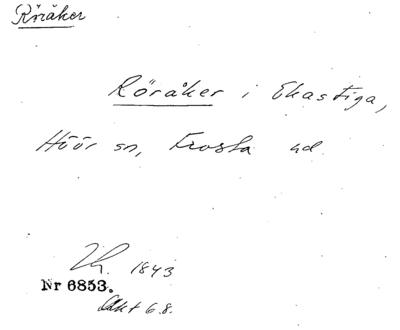 Röråker
Röråker i Ekastiga,
Höör sn, Frosta hd
1843
Nr 6853.
Akt 68.